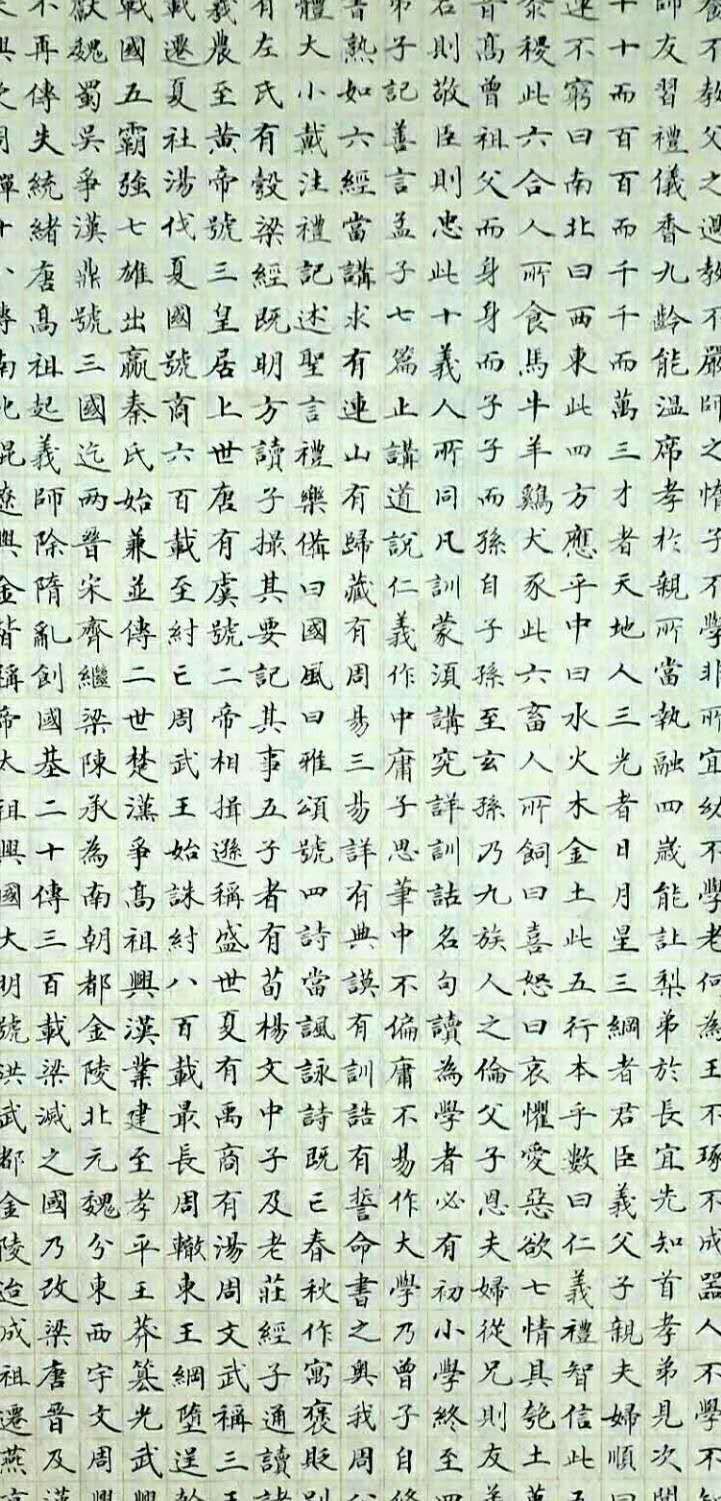 養不教父之過教不嚴師之惰子不學非所宜幼不學老何為玉不琢不成器人不學不知
師友習禮儀香九齡能溫席孝於親所當執融四歲能讓梨弟於長宜先知首孝弟見次聞
十十而百百而千千而萬三才者天地人三光者日月星三綱者君臣義父子親夫婦順曰
運不窮曰南北曰西東此四方應乎中曰水火木金土此五行本乎數曰仁義禮智信此五
黍稷此六合人所食馬牛羊鷄犬豕此六畜人所飼曰喜怒曰哀懼愛惡欲七情具匏土
音高曾祖父而身身而子子而孫自子孫至玄孫乃九族人之倫父子恩夫婦從兄則友弟
君則敬臣則忠此十義人所同凡訓蒙須講究詳訓詁名句讀為學者必有初小學終至四
弟子記善言孟子七篇止講道說仁義作中庸子思筆中不偏庸不易作大學乃曾子自修
書熟如六經當講求有連山有歸藏有周易三易詳有典謨有訓誥有誓命書之奧我周公
體大小戴注禮記述聖言禮樂備曰國風曰雅頌號四詩當諷詠詩既亡春秋作寓褒貶別
有左氏有穀梁經既明方讀子撮其要記其事五子者有荀楊文中子及老莊經子通讀諸
羲農至黃帝號三皇居上世唐有虞號二帝相揖遜稱盛世夏有禹商有湯周文武稱三王
載遷夏社湯伐夏國號商六百載至紂亡周武王始誅紂八百載最長周轍東王綱墮逞幹
戰國五霸強七雄出嬴秦氏始兼並傳二世楚漢爭高祖興漢業建至孝平王莽篡光武興
獻魏蜀吳爭漢鼎號三國迄兩晉宋齊繼梁陳承為南朝都金陵北元魏分東西宇文周興
不再傳失統緒唐高祖起義師除隋亂創國基二十傳三百載梁滅之國乃改梁唐晉及漢
周禪十八傳南北混遼與金皆稱帝太祖興國大明號洪武都金陵迨成祖遷燕京